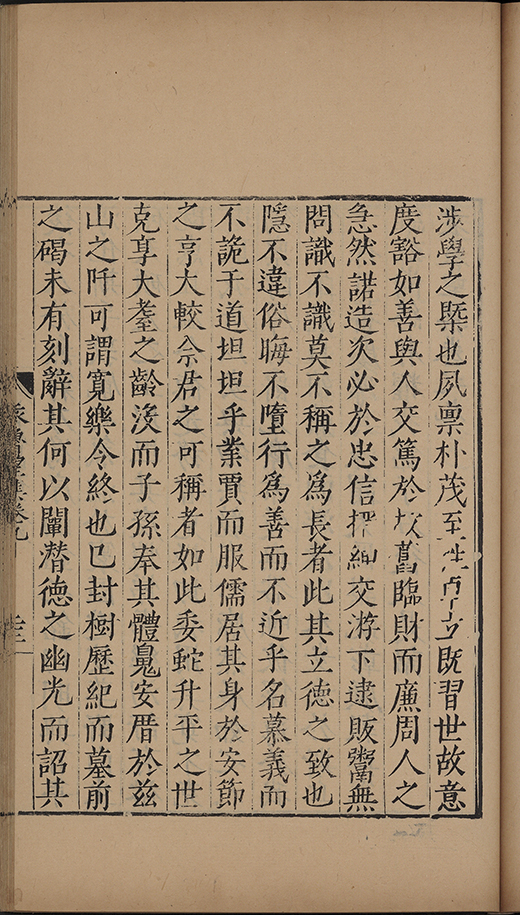 涉學之槩也夙禀朴茂至性貞立既習世故意
度豁如善與人交篤於故舊臨財而廉周人之
急然諾造次必於忠信搢紳交游下逮販鬻無
問識不識莫不稱之為長者此其立德之致也
隱不違俗晦不墮行為善而不近乎名慕義而
不詭于道坦坦乎業賈而服儒居其身於安節
之亨大較佘君之可稱者如此委蛇升平之世
克享大耋之齡沒而子孫奉其體鬼安厝於兹
山之阡可謂寬樂令終也已封樹歷紀而墓前
之碣未有刻辭其何以闡潛德之幽光而詔其
卷九